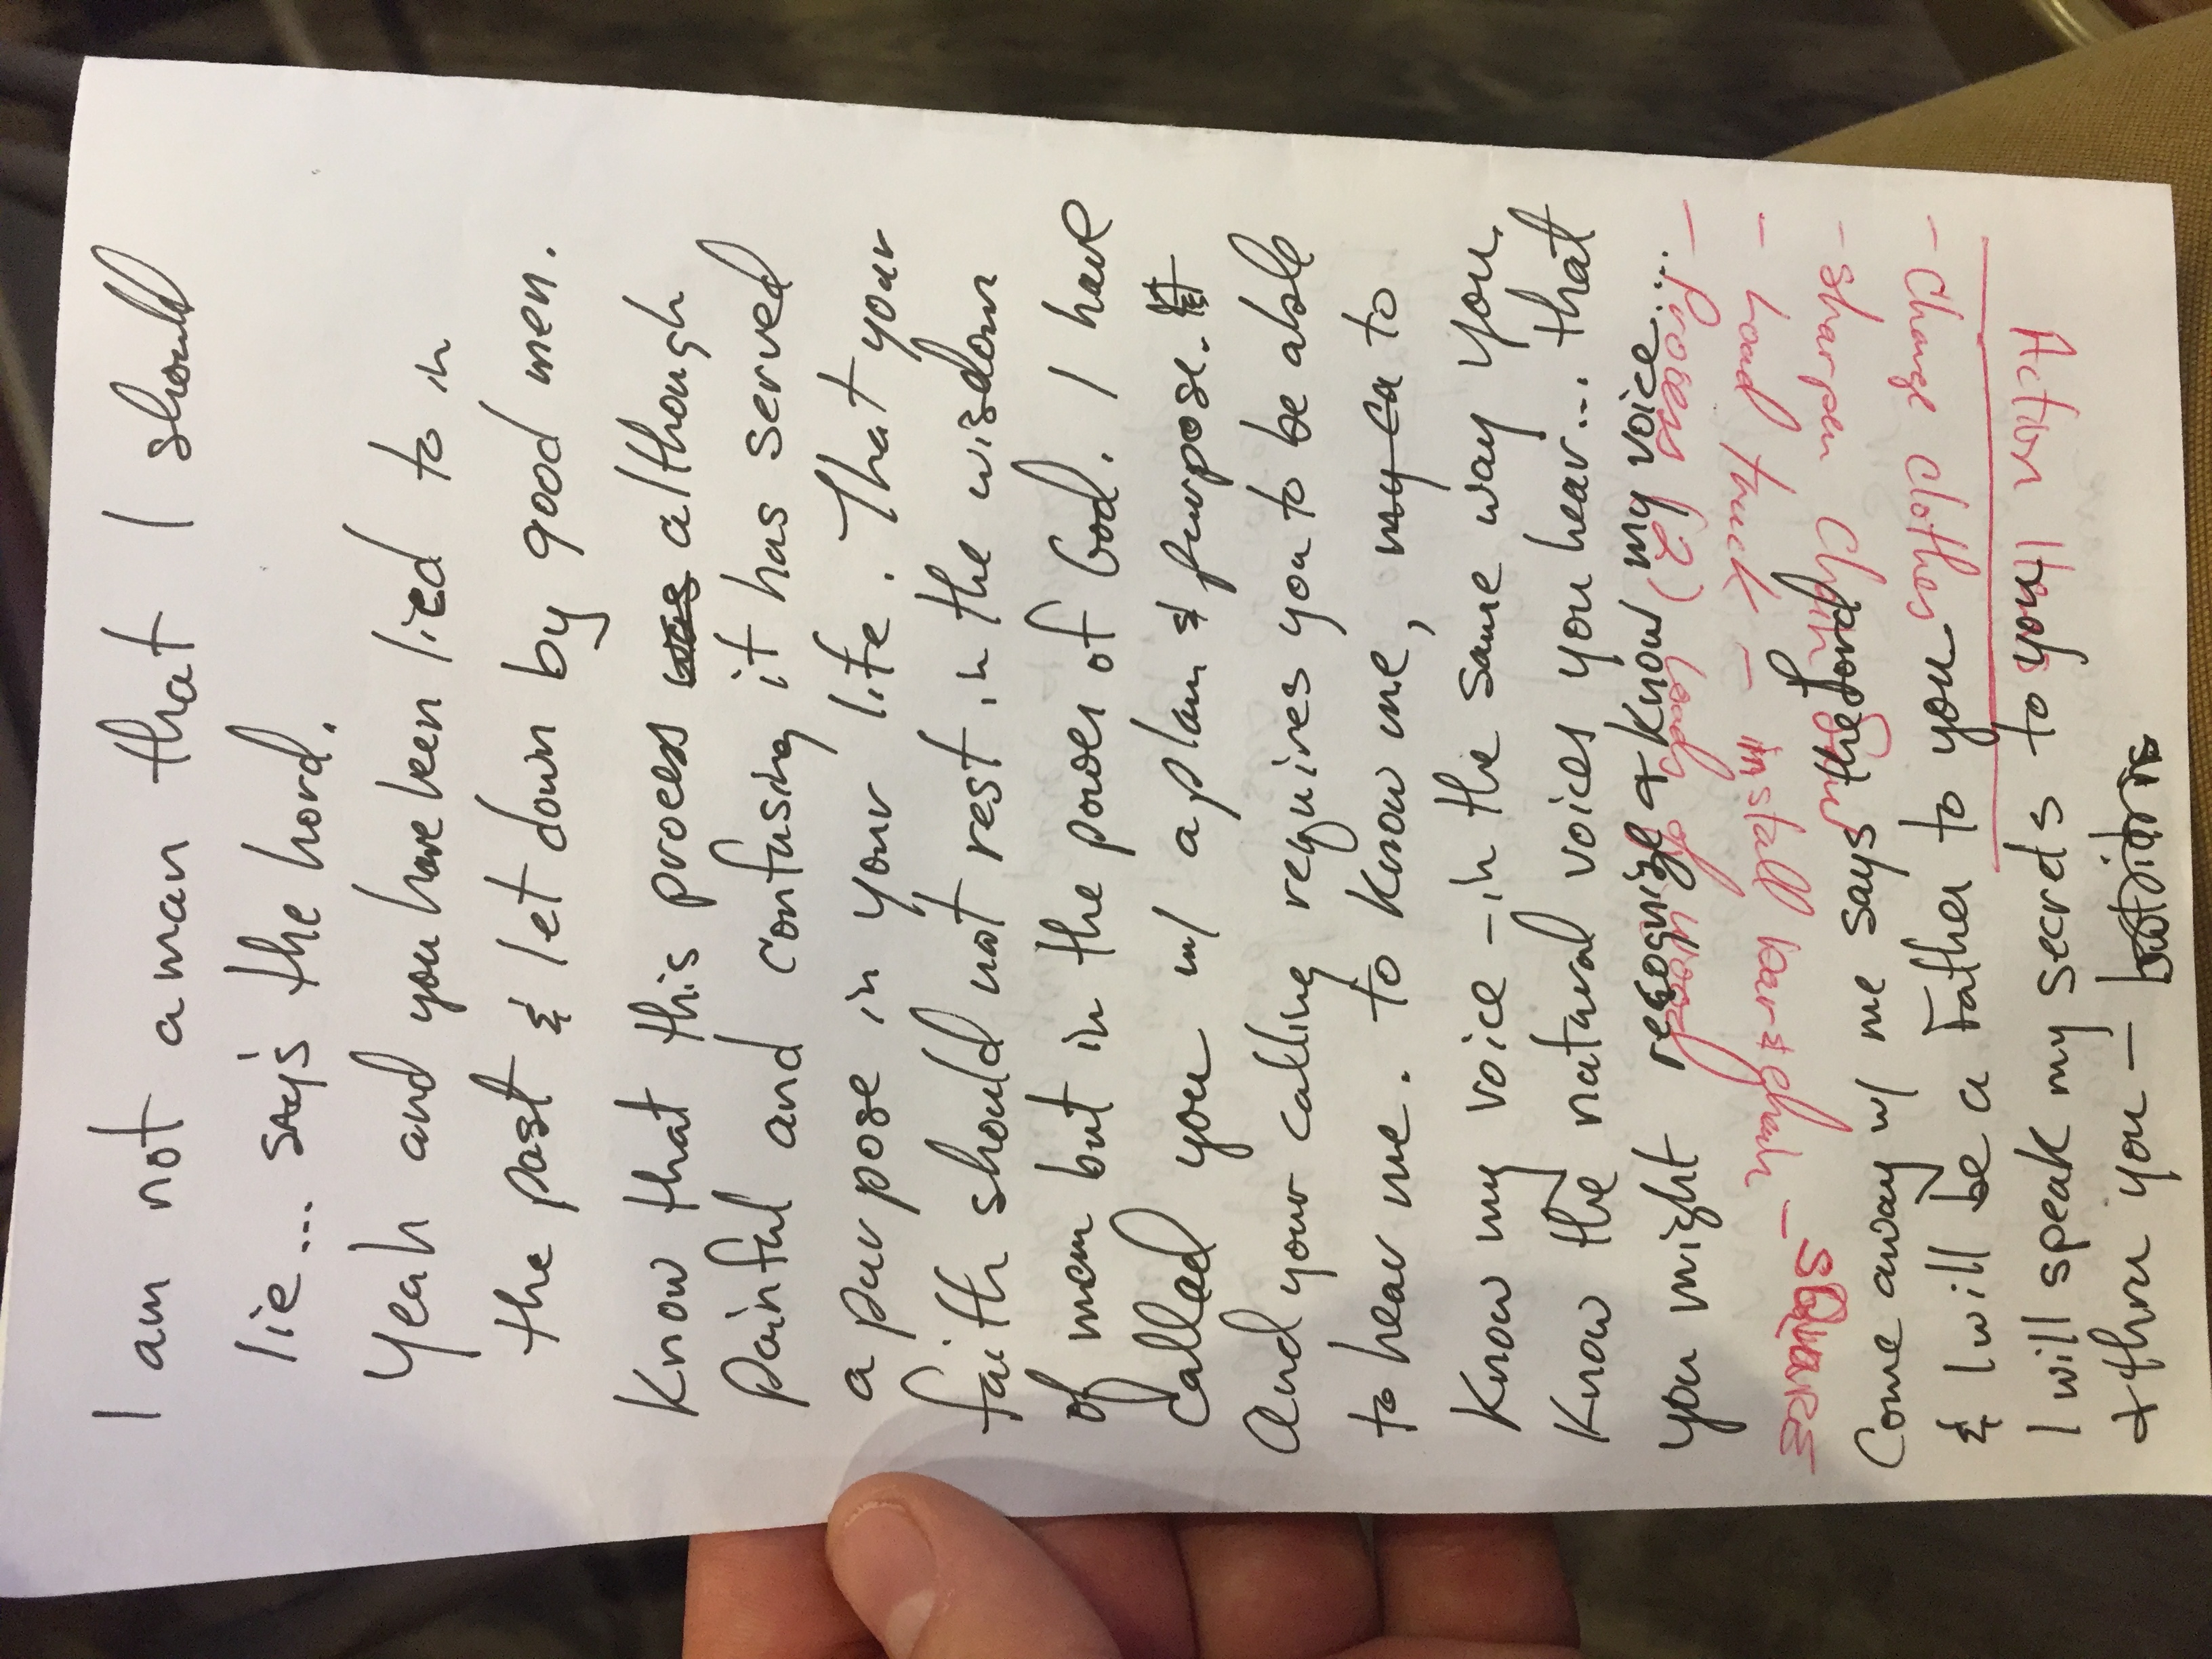 I am not a man that I should
lie... say's the Lord.
Yeah and you have been lied to in
the past & let down by good men.
Know that this process although
painful and confusing it has served
a purpose in your life. That your
faith should not rest in the wisdom
of men but in the power of God. I have
called you w/ a plan & purpose.
And your calling requires you to be able
to hear me. to know me, my to
know my voice - in the same way you
know the natural voices you hear... that
you might recognize & know my voice...
Come away w/ me says the Lord
& I will be a Father to you
I will speak my secrets to you
+ thru you -
Action Items
- Change clothes
- sharpen chain saws
- load truck - install bar & chain - SQUARE
- Process (2) loads of wood